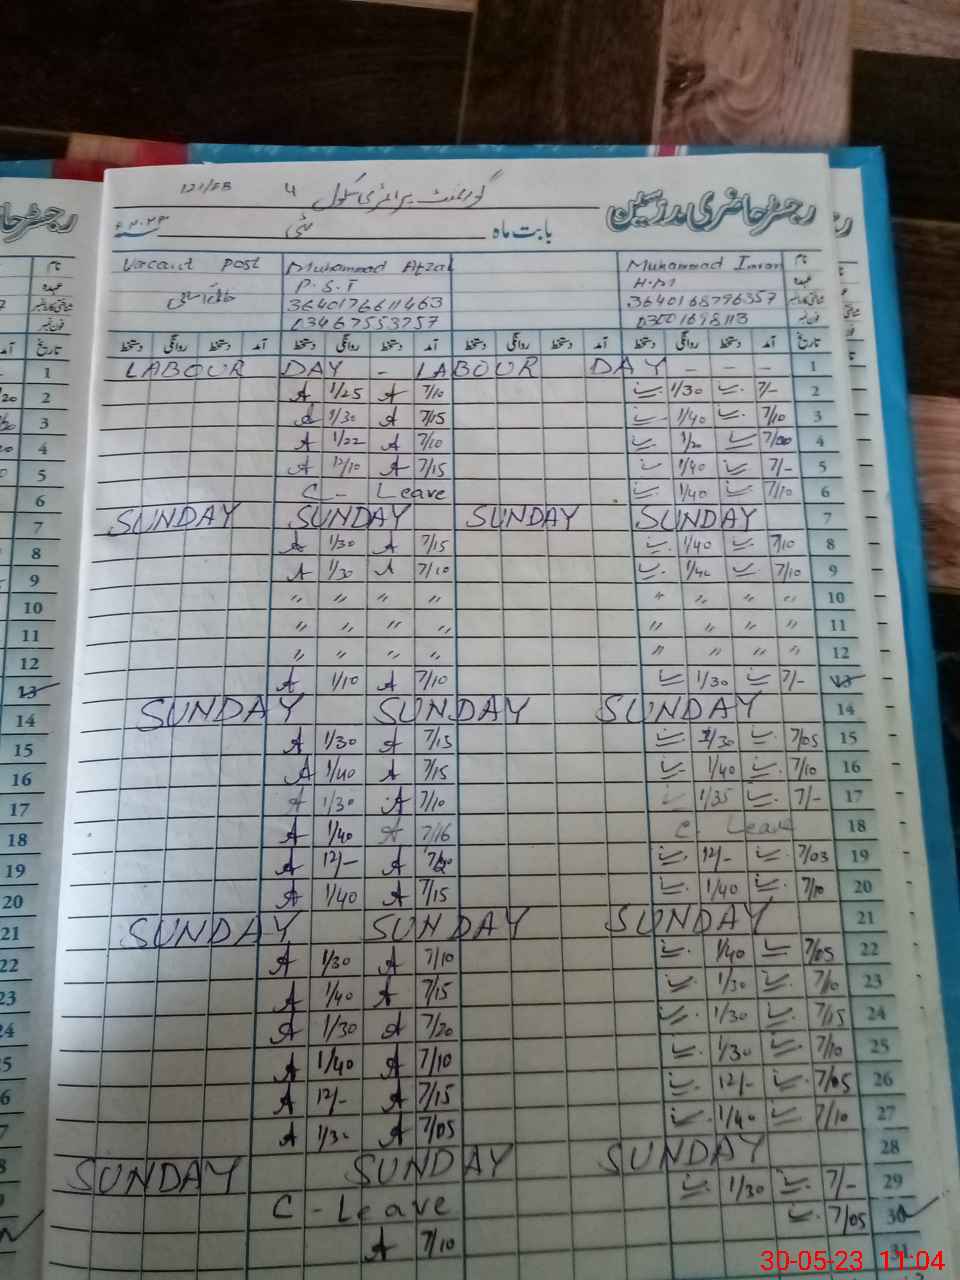 121/EB 4 گورنمنٹ پرائمری سکول رجسٹر حاضری مدرسین
بابت ماہ مئی ۲۰۲۳ء
Vacant Post Muhammad Afzal Muhammad Imran نام
P.S.T H.M عہدہ
خالی اسامی 3640176611463 3640168796357 شناختی کارڈ نمبر
03467553757 03001698113 فون نمبر
دستخط روانگی دستخط آمد دستخط روانگی دستخط آمد دستخط روانگی دستخط آمد دستخط روانگی دستخط آمد تاریخ
LABOUR DAY - LABOUR DAY - - - 1
A 1/25 A 7/10 1/30 7/- 2
A 1/30 A 7/15 1/40 7/10 3
A 1/22 A 7/10 1/20 7/00 4
A 12/10 A 7/15 1/40 7/- 5
C - Leave 1/40 7/10 6
SUNDAY SUNDAY SUNDAY SUNDAY 7
A 1/30 A 7/15 1/40 7/10 8
A 1/30 A 7/10 1/40 7/10 9
〃 〃 〃 〃 〃 〃 〃 〃 10
〃 〃 〃 〃 〃 〃 〃 〃 11
〃 〃 〃 〃 〃 〃 〃 〃 12
A 1/10 A 7/10 1/30 7/- 13
SUNDAY SUNDAY SUNDAY 14
A 1/30 A 7/15 1/30 7/05 15
A 1/40 A 7/15 1/40 7/10 16
A 1/30 A 7/10 1/35 7/- 17
A 1/40 A 7/16 C. Leave 18
A 12/- A 12/- 7/03 19
A 1/40 A 7/15 1/40 7/10 20
SUNDAY SUNDAY SUNDAY 21
A 1/30 A 7/10 1/40 7/05 22
A 1/40 A 7/15 1/30 7/10 23
A 1/30 A 7/20 1/30 7/15 24
A 1/40 A 7/10 1/30 7/10 25
A 12/- A 7/15 12/- 7/05 26
A 1/30 A 7/05 1/40 7/10 27
SUNDAY SUNDAY SUNDAY 28
C - Leave 1/30 7/- 29
A 7/10 7/05 30
31
30-05-23 11:04